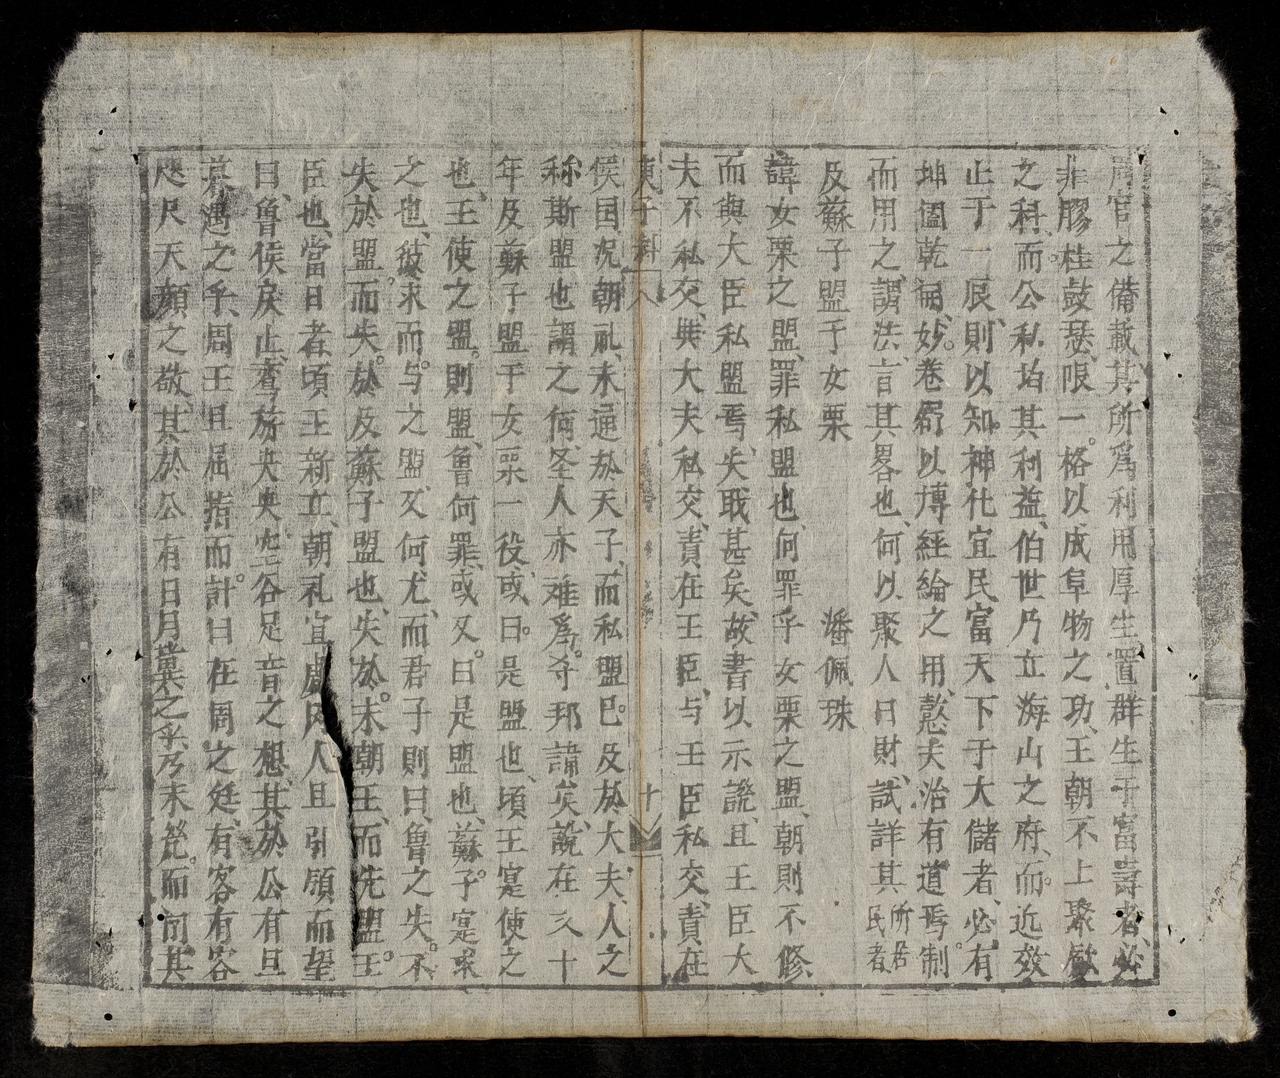 周官之備載其所為利用厚生置群生于富壽者必
非膠桂鼓瑟限一格以成阜物之功王朝不上聚斂
之科而公私均其利益伯世乃立海山之府而近效
止于一辰則以知神化宜民富天下于大儲者必有
坤闔乾闢妙卷舒以博經綸之用慭夫治有道焉制
而用之謂法言其畧也何以聚人曰財試詳其所居民者
及蘇子盟于女栗 潘佩珠
諱女栗之盟罪私盟也何罪乎女栗之盟朝則不修
而與大臣私盟焉失戢甚矣故書以示譏且王臣大
夫不私交與大夫私交責在王臣与王臣私交責在
庚子科 人 十
侯囯况朝礼未通於天子而私盟已及於大夫人之
称斯盟也謂之何圣人亦难為守邦諱矣說在文十
年及蘇子盟于女栗一役或曰是盟也頃王寔使之
也王使之盟則盟魯何罪或又曰是盟也蘇子寔求
之也彼求而与之盟又何尤而君子則曰魯之失不
失於盟而失於及蘇子盟也失於未朝王而先盟王
臣也當日者頃王新立朝礼宜肅国人且引領而望
曰魯侯戾止鸞旂央央空谷足音之想其於公有旦
暮遇之乎周王且屈指而計曰在周之廷有客有客
咫尺天顏之敬其於公有日月冀之乎乃未㡬而问其